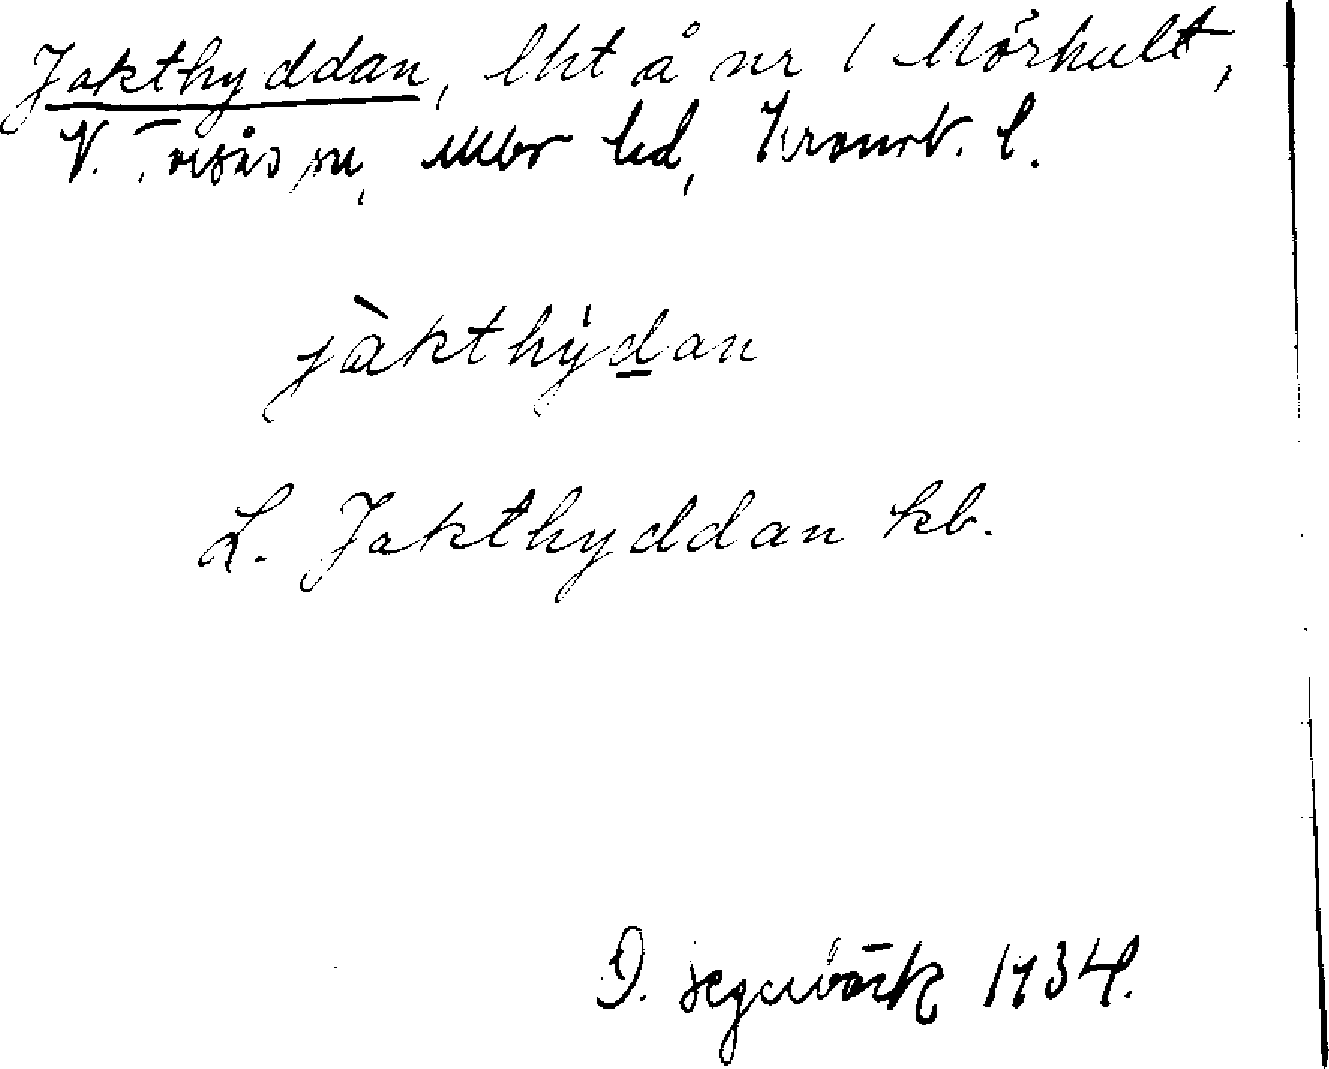 Jakthyddan, lht å nr 1 Mörhult,
V. Torsås sn, Möre hd, Kronob. l.
jàkthýdan
L. Jakthyddan kb.
D. Segerbäck 1934.